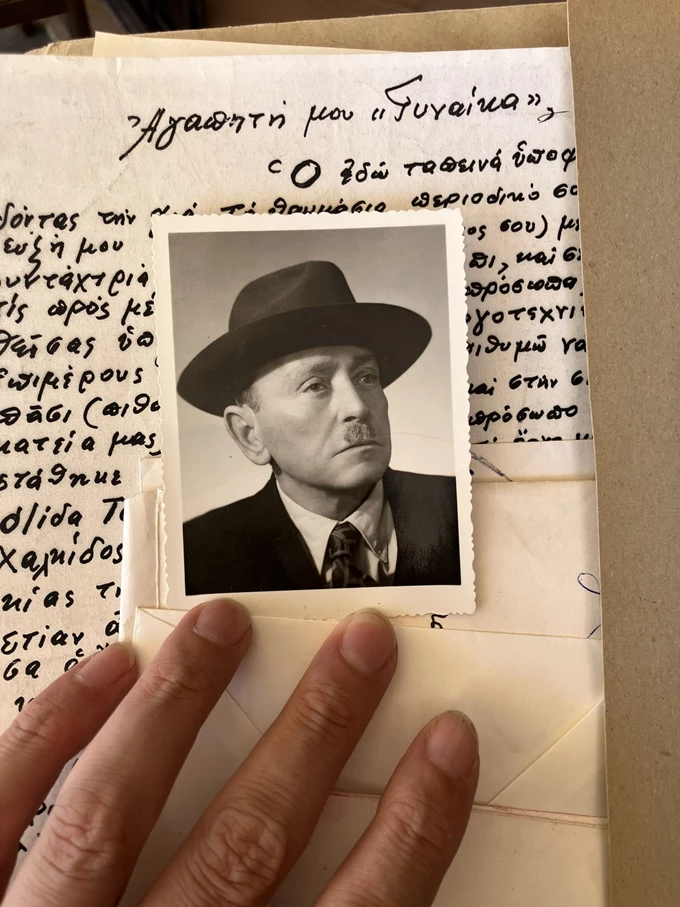 Ἀγαπητή μου «Γυναίκα»,
Ὁ ἐδῶ ταπεινά ὑποφ
δόντας τήν περιοδικό σο
εὐχή μου ος σου) με
υντάχτρια πι, καί σ
τίς πρός μέ πρόσωπα
θείσας ὑπ γοτεχνι
ἐπιμέρους ιθυμῶ να
πᾶσι (πιθα καί στήν σ
ματεία μας πρόσωπο
στάθηκε
ολίδα Τ
Χαλκίδος
κίας τ
ετίαν
σα